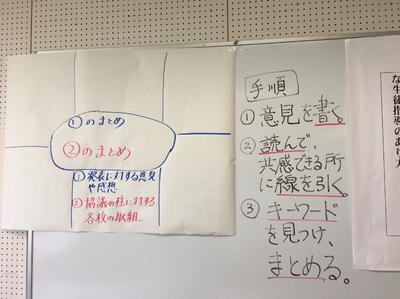 ①のまとめ
②のまとめ
①発表に対する意見
や感想
②協議の柱に対する
各校の取組
手順
①意見を書く。
②読んで、
共感できる所
に線を引く。
③キーワード
を見つけ、
まとめる。
な生徒指導のあり方